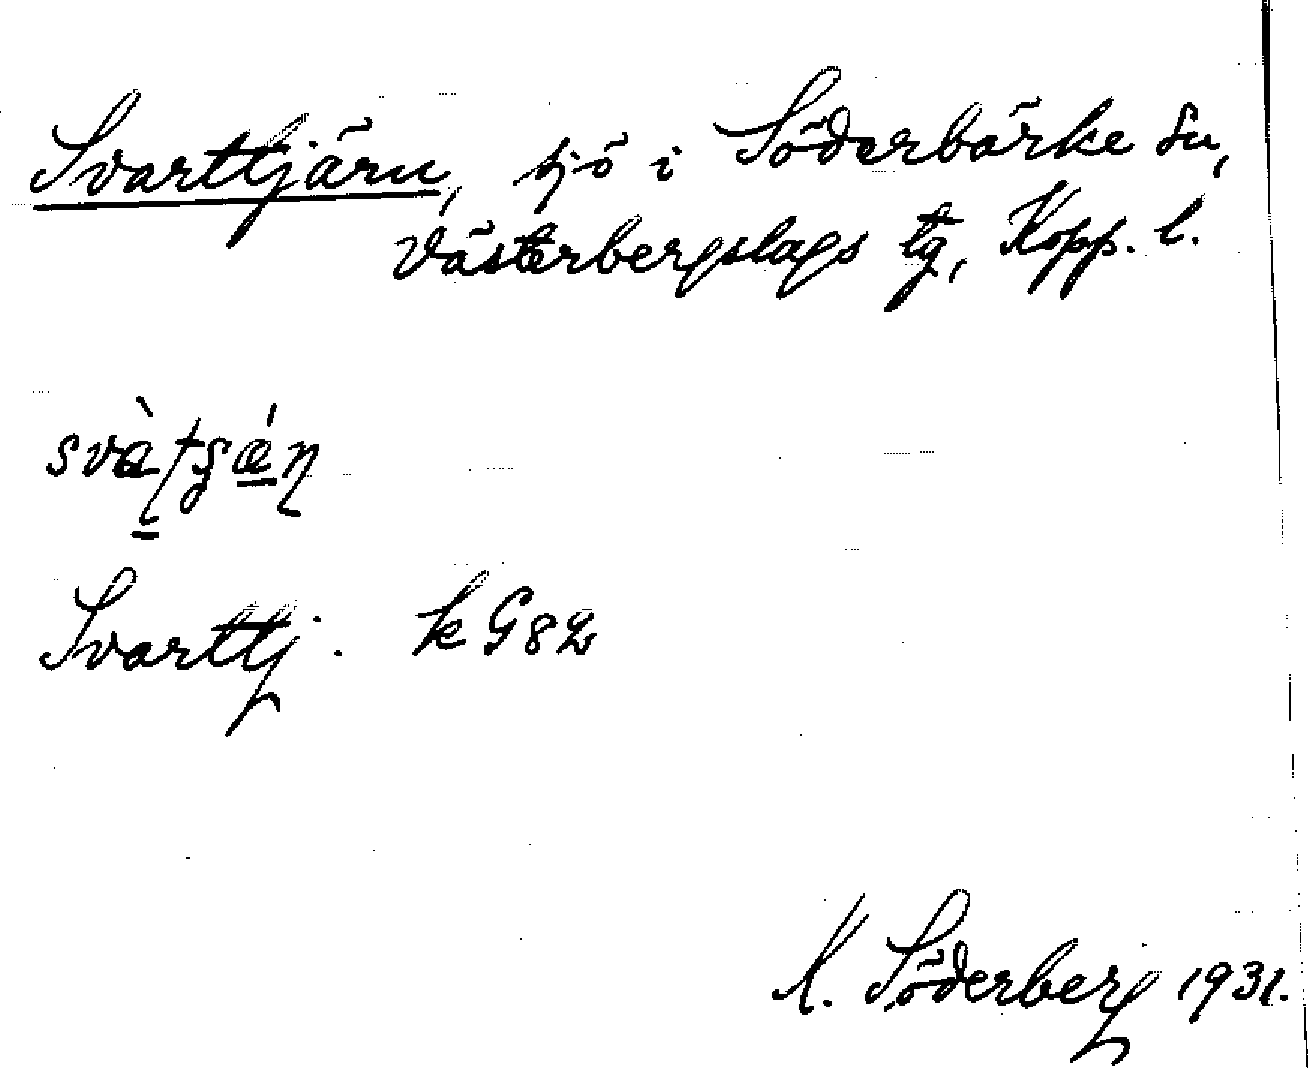 Svarttjärn, sjö i Söderbärke sn,
Västerbergslags tg, Kopp. l.
Svarttj. k G82
K. Söderberg 1931.